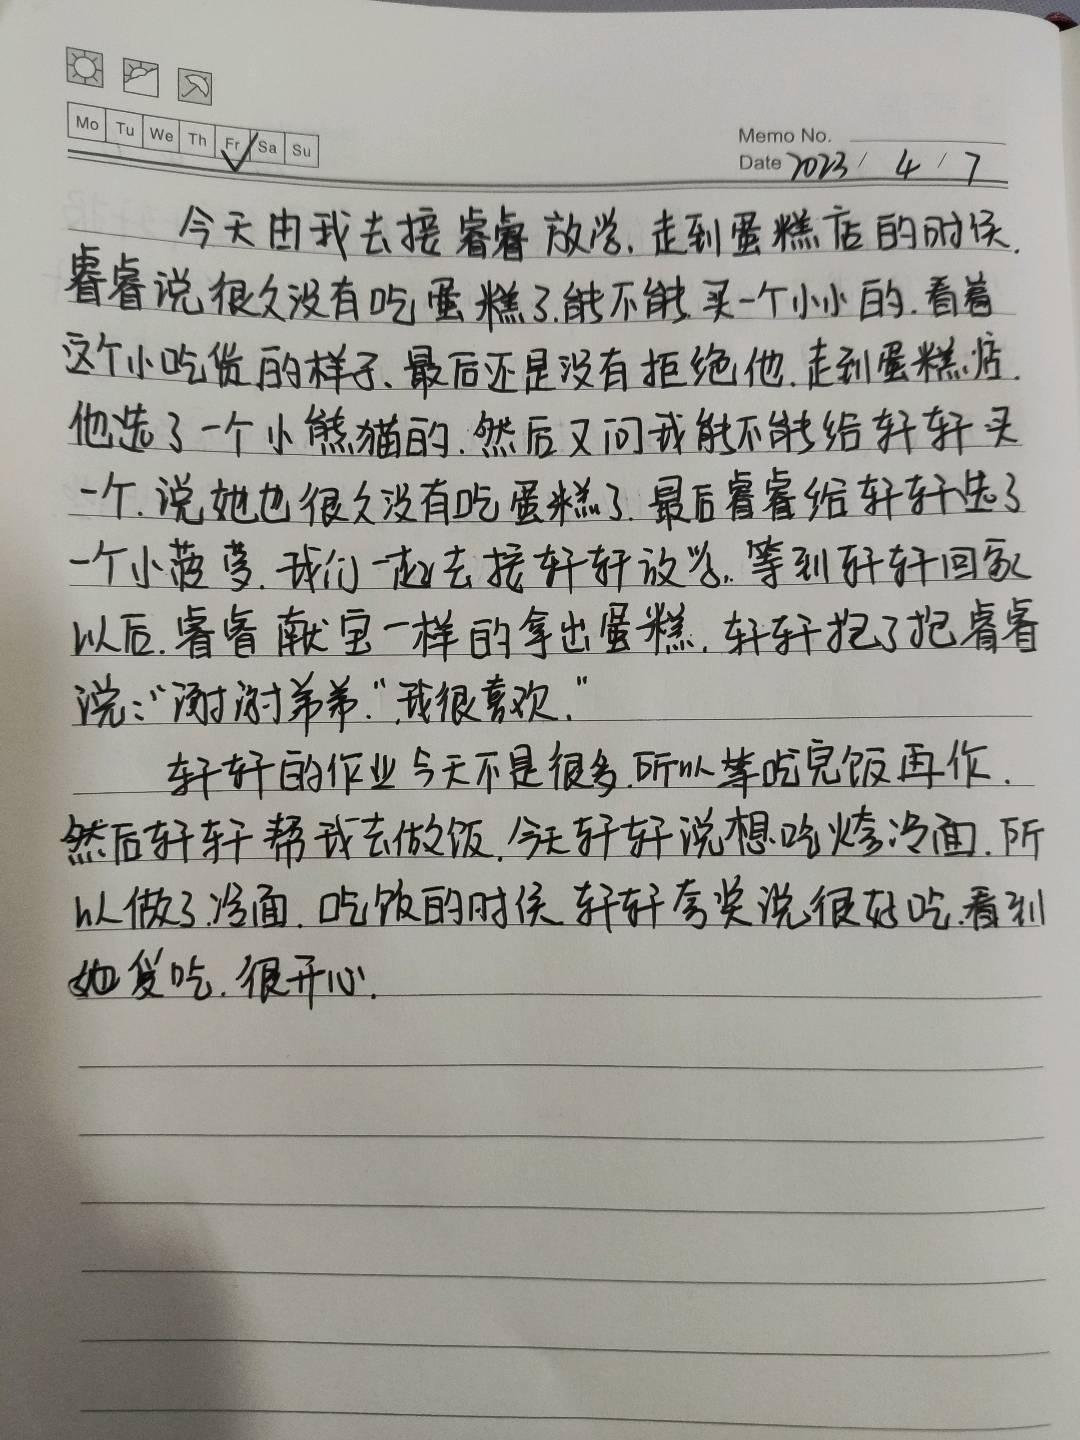 Mo Tu We Th Fr Sa Su
Memo No.
Date 2023 / 4 / 7
今天由我去接睿睿放学.走到蛋糕店的时候.
睿睿说很久没有吃蛋糕了.能不能买一个小小的.看着
这个小吃货的样子、最后还是没有拒绝他.走到蛋糕店.
他选了一个小熊猫的.然后又问我能不能给轩轩买
一个.说她也很久没有吃蛋糕了.最后睿睿给轩轩选了
一个小菠萝.我们一起去接轩轩放学.等到轩轩回家
以后.睿睿献宝一样的拿出蛋糕.轩轩抱了抱睿睿
说:"谢谢弟弟.""我很喜欢."
轩轩的作业今天不是很多.所以等吃完饭再作.
然后轩轩帮我去做饭.今天轩轩说想吃烤冷面.所
以做了冷面.吃饭的时候轩轩夸奖说很好吃.看到
她爱吃.很开心.